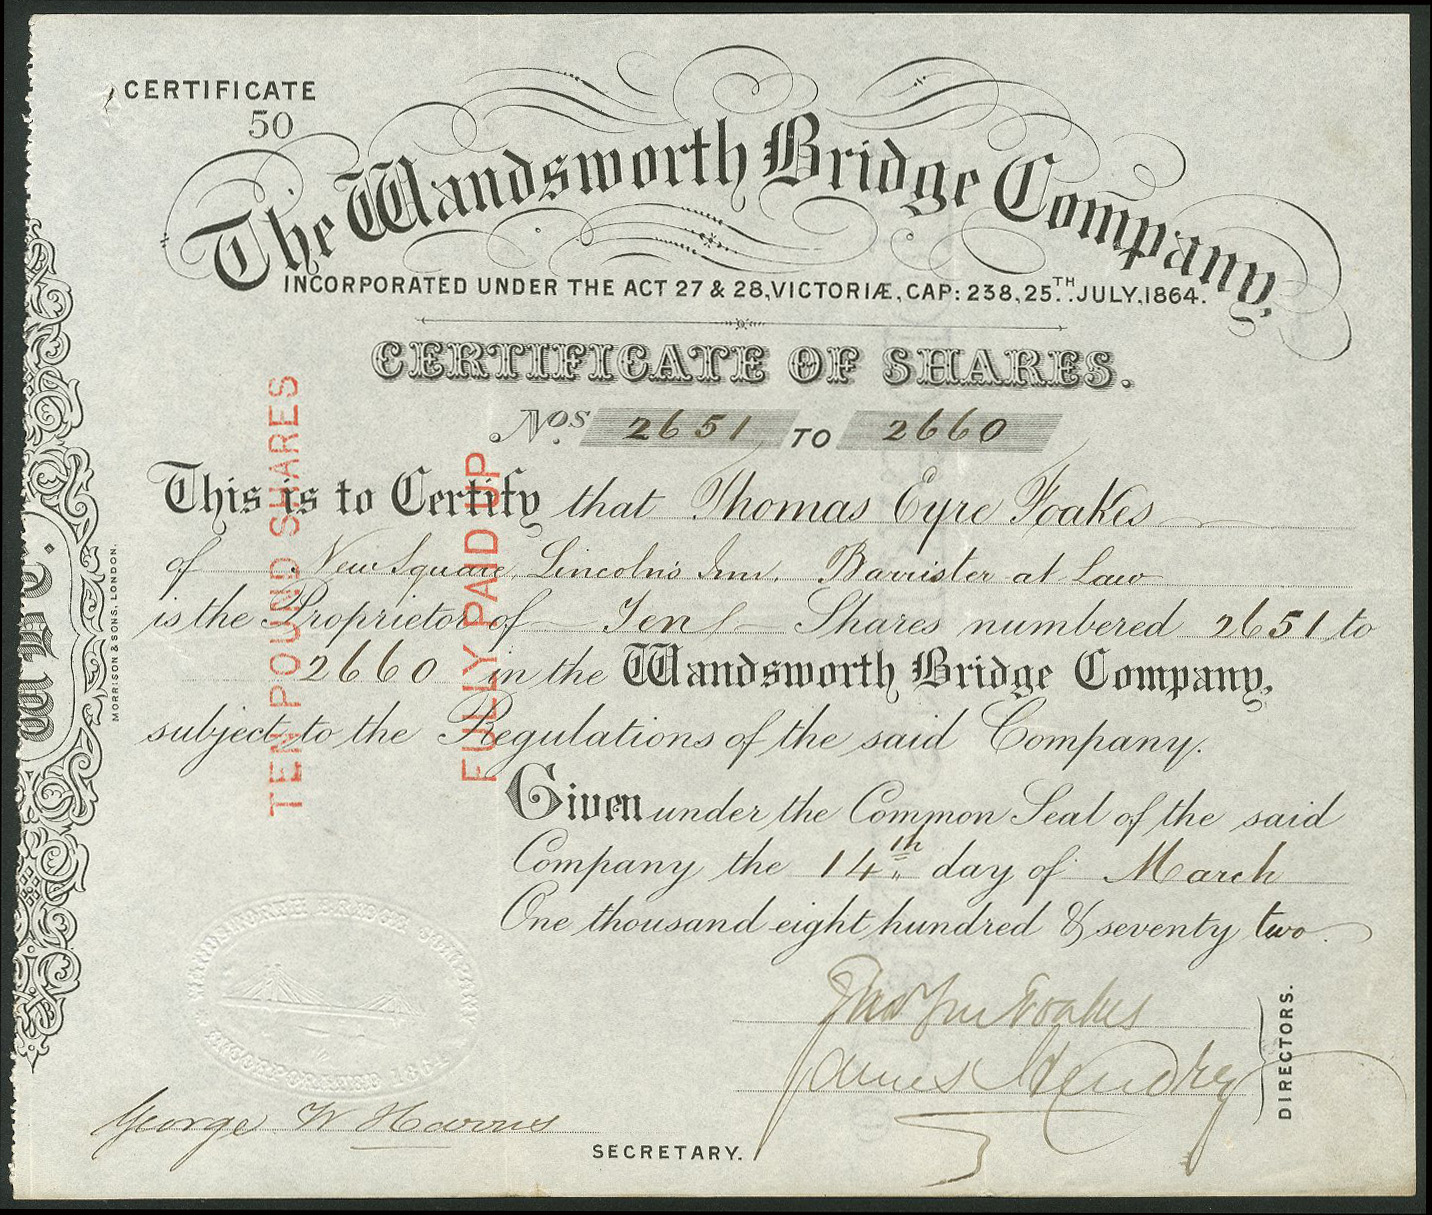 CERTIFICATE
50
The Wandsworth Bridge Company,
INCORPORATED UNDER THE ACT 27 & 28, VICTORIÆ, CAP: 238, 25TH. JULY, 1864.
CERTIFICATE OF SHARES.
Nos. 2651 TO 2660
This is to Certify that Thomas Eyre Foakes
of New Square, Lincoln's Inn, Barrister at Law
is the Proprietor of Ten Shares numbered 2651 to
2660 in the Wandsworth Bridge Company,
subject to the Regulations of the said Company.
Given under the Common Seal of the said
Company the 14th day of March
One thousand eight hundred & seventy two.
TEN POUND SHARES
FULLY PAID UP
MORRISON & SONS, LONDON.
WANDSWORTH BRIDGE COMPANY
INCORPORATED 1864
Foakes
James Hendrey
DIRECTORS.
George W Harris
SECRETARY.